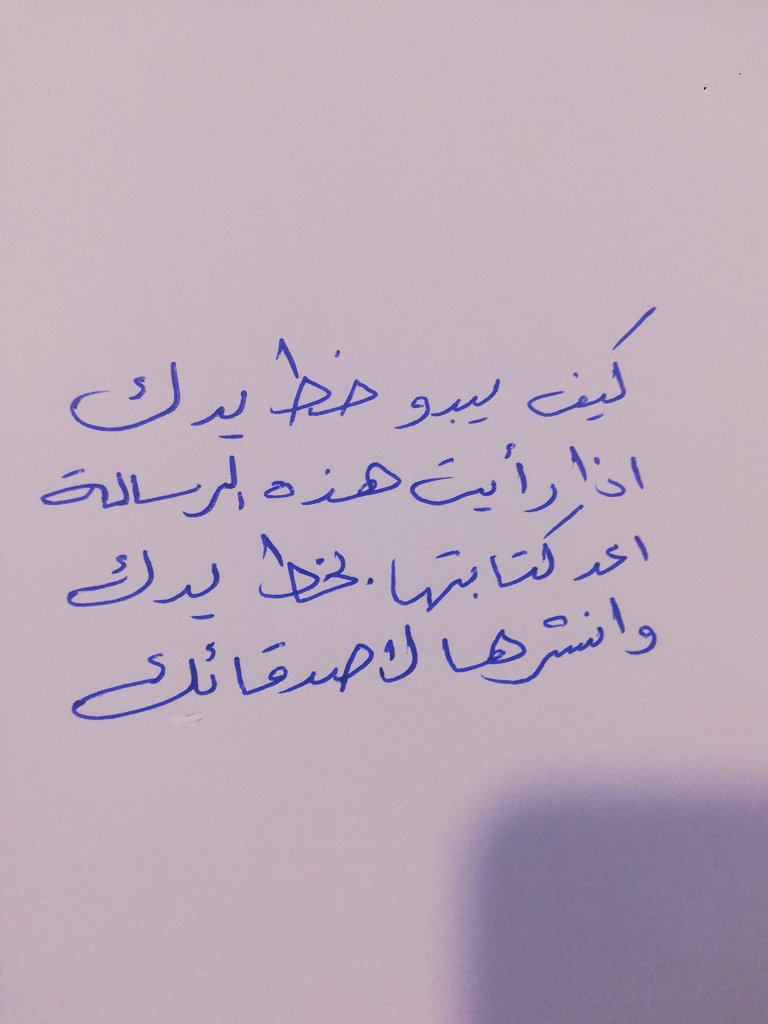 كيف يبدو خط يدك
اذا رأيت هذه الرسالة
اعد كتابتها بخط يدك
وانشرها لأصدقائك